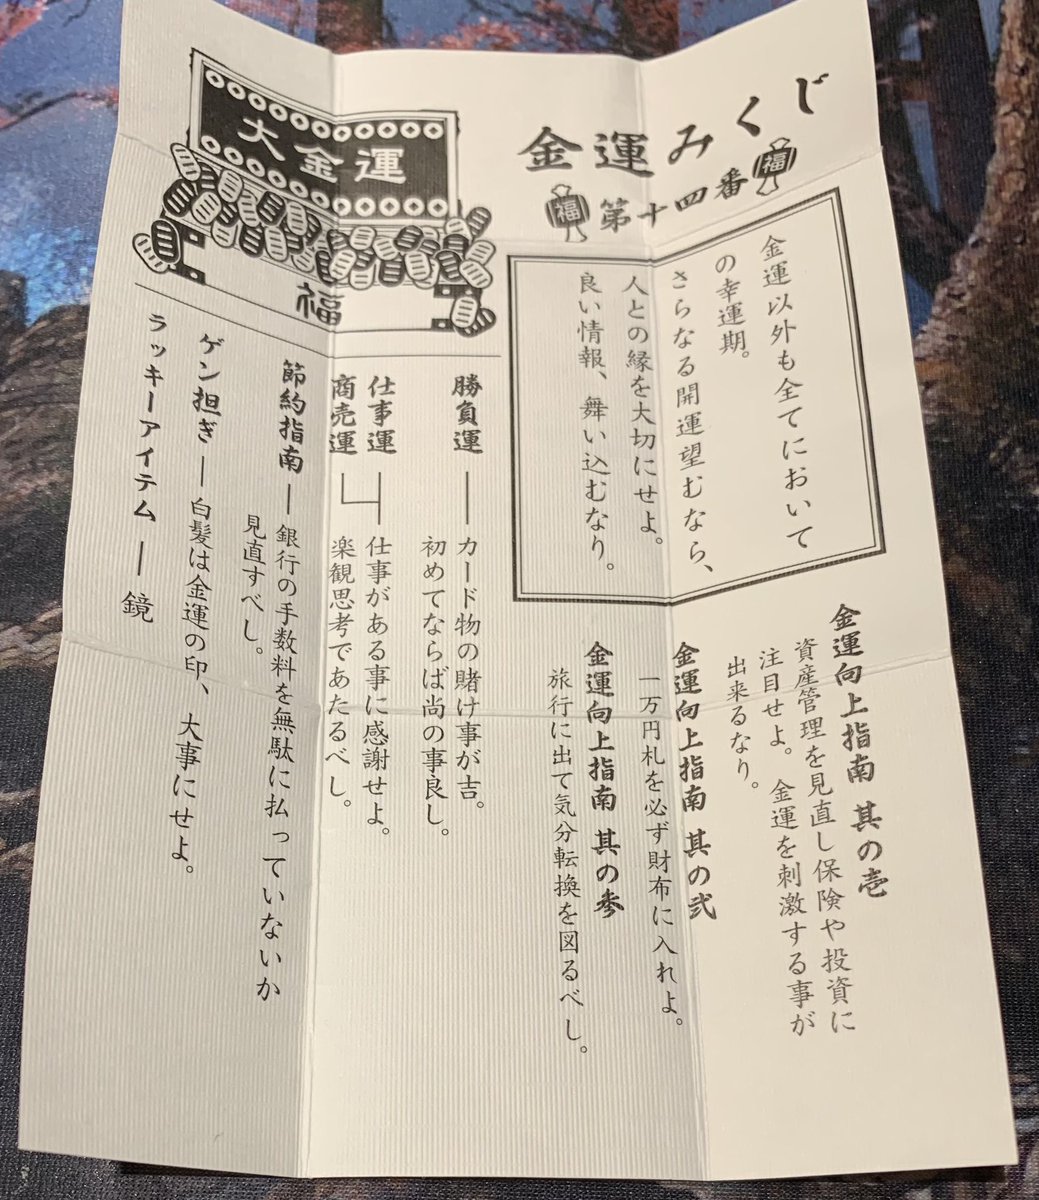 金運みくじ
福
第十四番
福
金運以外も全てにおいて
の幸運期。
さらなる開運望むなら、
人との縁を大切にせよ。
良い情報、舞い込むなり。
金運向上指南 其の壱
資産管理を見直し保険や投資に
注目せよ。金運を刺激する事が
出来るなり。
金運向上指南 其の弐
一万円札を必ず財布に入れよ。
金運向上指南 其の参
旅行に出て気分転換を図るべし。
大金運
福
勝負運
カード物の賭け事が吉。
初めてならば尚の事良し。
仕事運
商売運
仕事がある事に感謝せよ。
楽観思考であたるべし。
節約指南
銀行の手数料を無駄に払っていないか
見直すべし。
ゲン担ぎ
白髪は金運の印、大事にせよ。
ラッキーアイテム
鏡